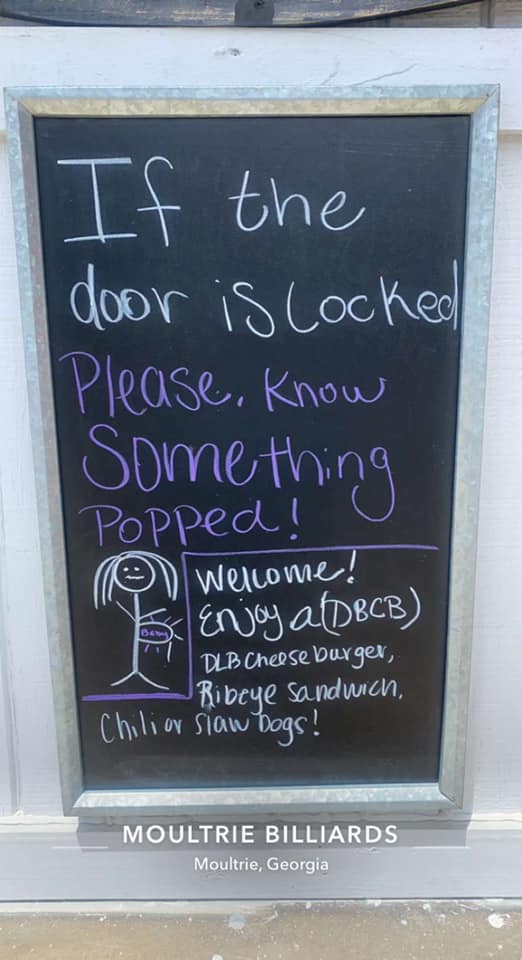 If the
door is Locked
Please. Know
Something
Popped!
Baby
Welcome!
Enjoy a (DBCB)
DLB Cheeseburger,
Ribeye Sandwich,
Chili or Slaw Dogs!
MOULTRIE BILLIARDS
Moultrie, Georgia